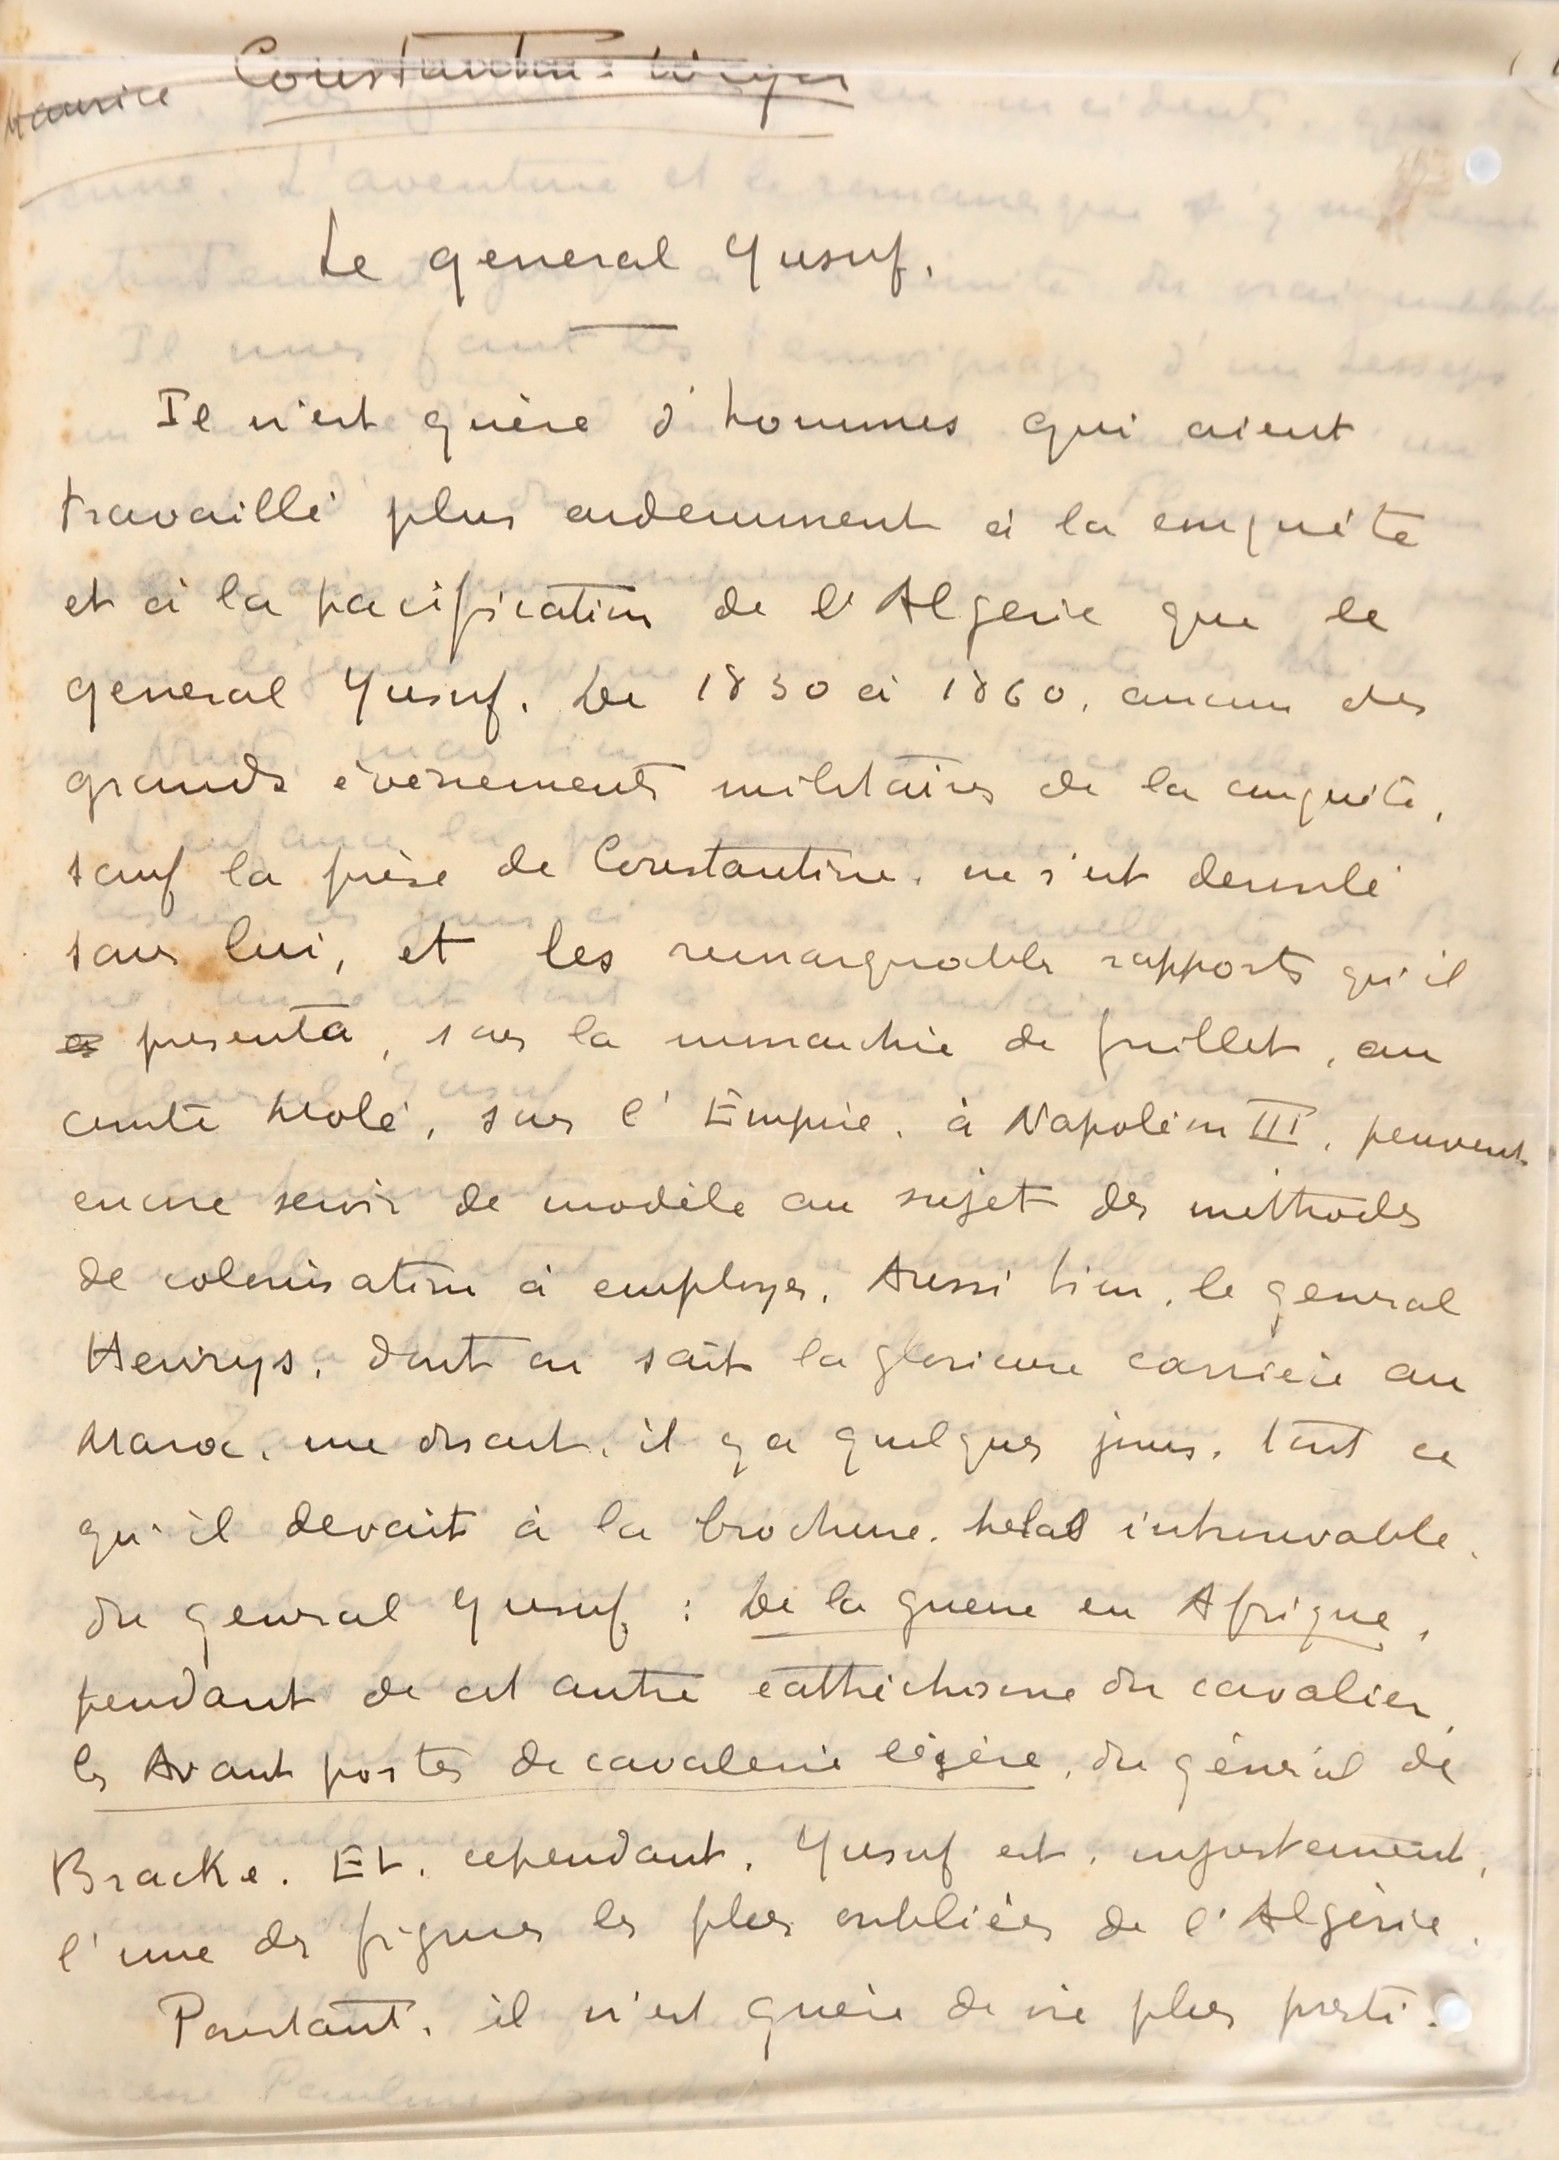 Maurice Constantin-Weyer
Le general Yusuf.
Il n'est guère d'hommes qui aient
travaillé plus ardemment à la conquête
et à la pacification de l'Algerie que le
general Yusuf. De 1830 à 1860, aucun des
grands évènements militaires de la conquête,
sauf la prise de Constantine, ne s'est deroulé
sans lui, et les remarquables rapports qu'il
presenta, sous la monarchie de Juillet, au
comte Molé, sous l'Empire, à Napoléon III, peuvent
encore servir de modèle au sujet des méthodes
de colonisation à employer. Aussi bien, le general
Henrys, dont on sait la glorieuse carrière au
Maroc, me disait, il y a quelques jours, tout ce
qu'il devait à la brochure, helas introuvable,
du general Yusuf : De la guerre en Afrique,
pendant de cet autre cathéchisme du cavalier,
les Avant postes de cavalerie légère, du général de
Bracke. Et, cependant, Yusuf est, injustement,
l'une des figures les plus oubliées de l'Algérie.
Pourtant, il n'est guère de vie plus presti-